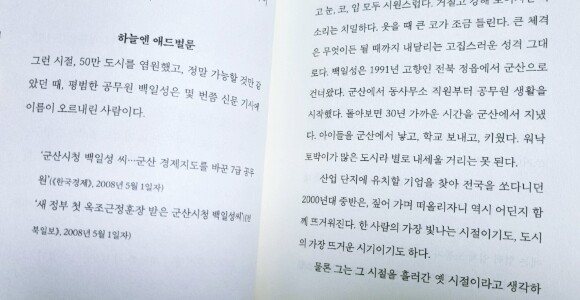 하늘엔 애드벌룬
그런 시절, 50만 도시를 염원했고, 정말 가능할 것만 같
았던 때, 평범한 공무원 백일성은 몇 번쯤 신문 기사에
이름이 오르내린 사람이다.
‘군산시청 백일성 씨…군산 경제지도를 바꾼 7급 공무
원’(《한국경제》, 2008년 5월 1일자)
‘새 정부 첫 옥조근정훈장 받은 군산시청 백일성씨’(《전
북일보》, 2008년 5월 1일자)
고 눈, 코, 입 모두 시원스럽다. 거칠고
소리는 치밀하다. 웃을 때 큰 코가 조금 들린다. 큰 체격
은 무엇이든 될 때까지 내달리는 고집스러운 성격 그대
로다. 백일성은 1991년 고향인 전북 정읍에서 군산으로
건너왔다. 군산에서 동사무소 직원부터 공무원 생활을
시작했다. 돌아보면 30년 가까운 시간을 군산에서 지냈
다. 아이들을 군산에서 낳고, 학교 보내고, 키웠다. 워낙
토박이가 많은 도시라 별로 내세울 거리는 못 된다.
산업 단지에 유치할 기업을 찾아 전국을 쏘다니던
2000년대 중반은, 짚어 가며 떠올리자니 역시 어딘지 함
께 뜨거워진다. 한 사람의 가장 빛나는 시절이기도, 도시
의 가장 뜨거운 시기이기도 하다.
물론 그는 그 시절을 흘러간 옛 시절이라고 생각하